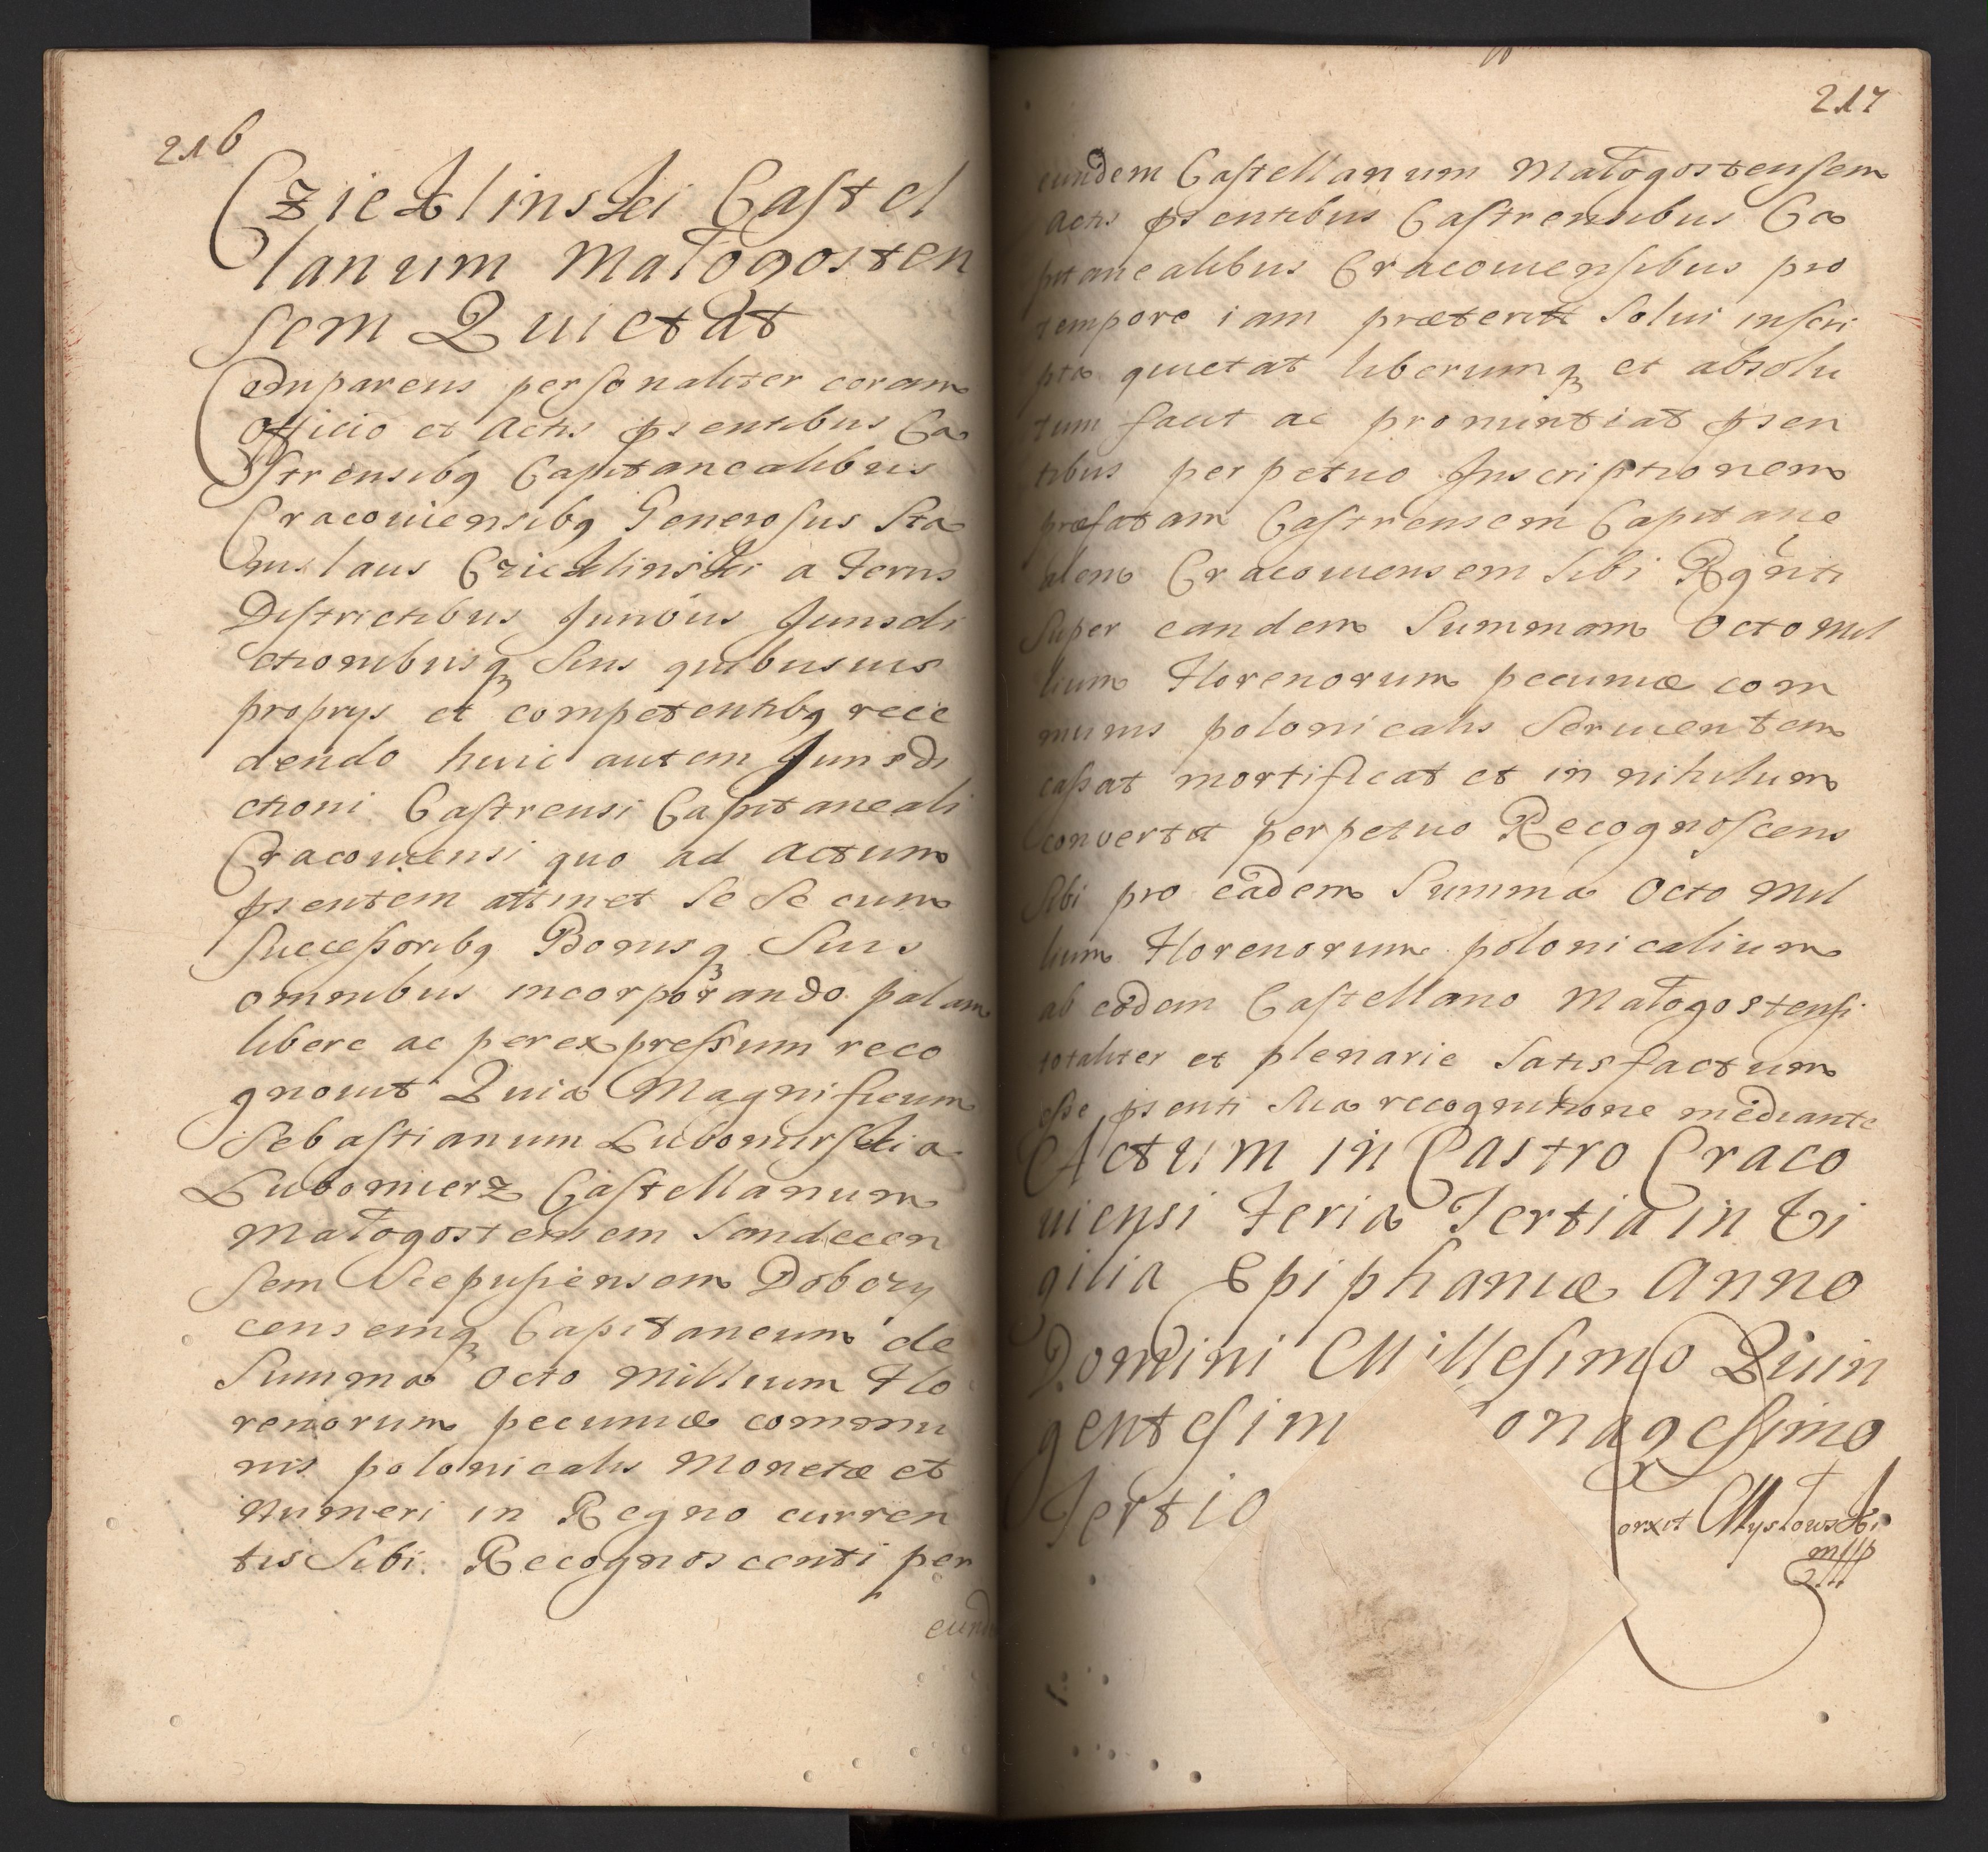 216
Czieklinski Castel
lanum Małogosten
sem Quietat
Comparens personaliter coram
Officio et Actis pñtentibus Ca
strensibq Capitanealibus
Cracouiensibq Generosus Sta
nislaus Czieklinski a Terris
Districtibus Juribus Jurisdi
ctionibusq Suis quibusuis
proprys et competentibq rece
dendo huic autem Jurisdi
ctioni Castrensi Capitaneali
Cracouiensi quo ad actum
psentem attinet se se cum
Successoribq Bonisq Suis
omnibus incorporando palam
libere ac per expressum reco
gnouit Quia Magnificum
Sebastianum Lubomirski a
Lubomierz Castellanum
Małogostensem Sandecen
sem Scepusiensem Dobczy
censemq Capitaneum de
Summa Octo Millium Flo
renorum pecuniæ commu
nis polonicalis Monetæ et
Numeri in Regno curren
tis Sibi Recognoscenti per
eund
217
eundem Castellanum Małogostensem
Actis psentibus Castrensibus Ca
pitanealibus Cracouiensibus pro
tempore iam præterito Solui inscri
pta quietat liberumq et absolu
tum facit ac pronuntiat psen
tibus perpetuo Inscriptionem
præfatam Castrensem Capitane
alem Cracouiensem Sibi Rgñti
Super eandem Summam Octo Mil
lium Florenorum pecuniæ com
munis polonicalis Seruientem
cassat mortificat et in nihilum
convertit perpetuo Recognoscens
Sibi pro eadem Summa Octo Mil
lium Florenorum polonicalium
ab eodem Castellano Małogostensi
totaliter et plenarie Satisfactum
esse psenti Sua recognitione mediante
Actum in Castro Craco
uiensi Feria Tertia in Vi
gilia Epiphaniæ Anno
Domini Millesimo Quin
gentesim onagessimo
Tertio
orxit Mysłowski
mpp